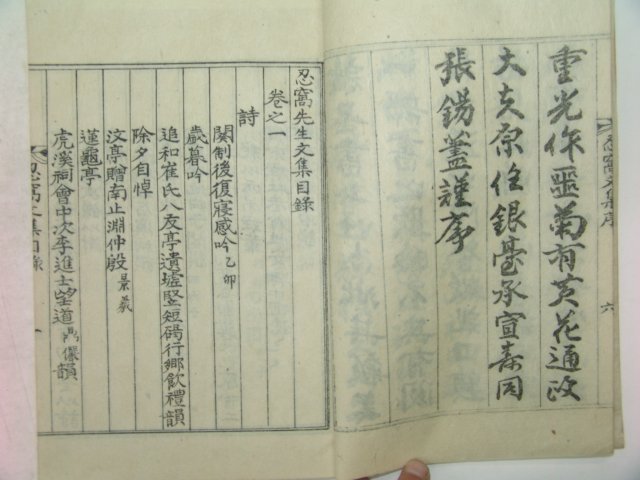 忍窩文集序
六
重光作噩菊有黃花通政
大夫原任銀臺承宣壽同
張錫藎謹序
忍窩先生文集目錄
卷之一
詩
闋制後復寢感吟 乙卯
歲暮吟
追和崔氏八友亭遺墟竪短碣行鄉飮禮韻
除夕自悼
汶亭贈南止淵仲殷 景羲
蓮龜亭
虎溪祠會中次李進士望道 韻
忍窩文集目錄
一